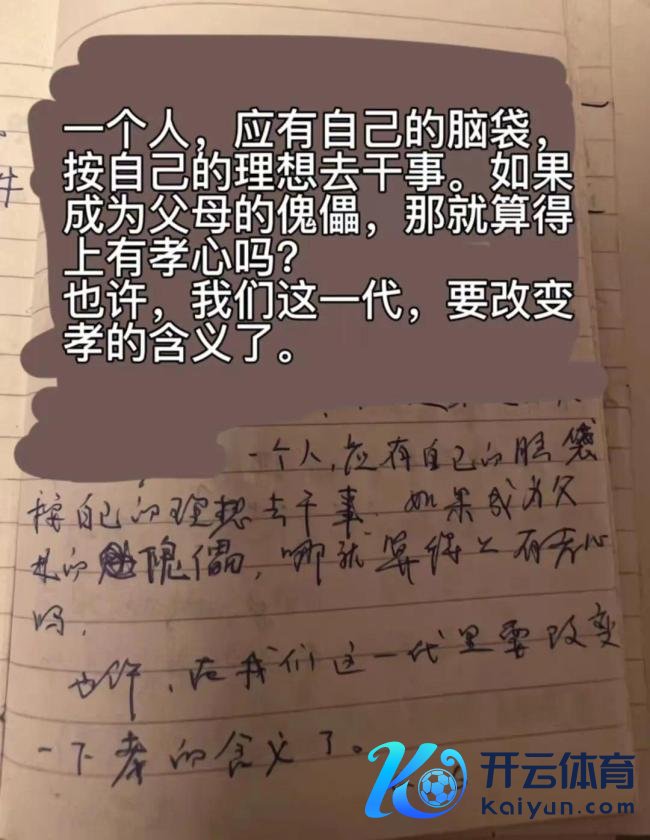 一个人，应有自己的脑袋，
按自己的理想去干事。如果
成为父母的傀儡，那就算得
上有孝心吗？
也许，我们这一代，要改变
孝的含义了。
件
一个人，应有自己的脑袋
按自己的理想去干事．如果成为父
母的傀儡，哪就算得上有孝心
吗．
也许，在我们这一代里要改变
一下孝的含义了。
开云体育
kaiyun.com